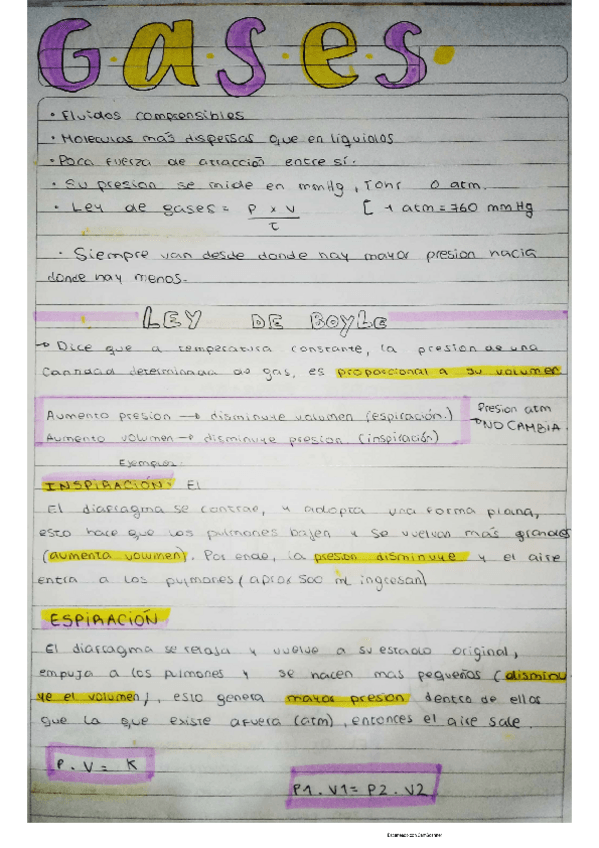 GASES.
• Fluidos comprensibles
• Moleculas más dispersas que en liquidos
• Poca fuerza de atracción entre sí.
• Su presion se mide en mmHg, Torr o atm.
• Ley de gases = P x V [ 1 atm = 760 mmHg
T
• Siempre van desde donde hay mayor presion hacia
donde hay menos.
LEY DE BOYLE
→ Dice que a temperatura constante, la presion de una
cantidad determinada de gas, es proporcional a su volumen
Aumento presion → disminuye volumen (espiración.)
Aumento volumen → disminuye presion (inspiración)
Presion atm
→ NO CAMBIA.
Ejemplos:
INSPIRACIÓN: El
El diafragma se contrae, y adopta una forma plana,
esto hace que los pulmones bajen y se vuelvan más grandes
(aumenta volumen). Por ende, la presion disminuye y el aire
entra a los pulmones (aprox 500 ml ingresan)
ESPIRACIÓN
El diafragma se relaja y vuelve a su estado original,
empuja a los pulmones y se hacen mas pequeños (disminu
ye el volumen), esto genera mayor presion dentro de ellos
que la que existe afuera (atm), entonces el aire sale.
P . V = K
P1 . V1 = P2 . V2
Escaneado con CamScanner